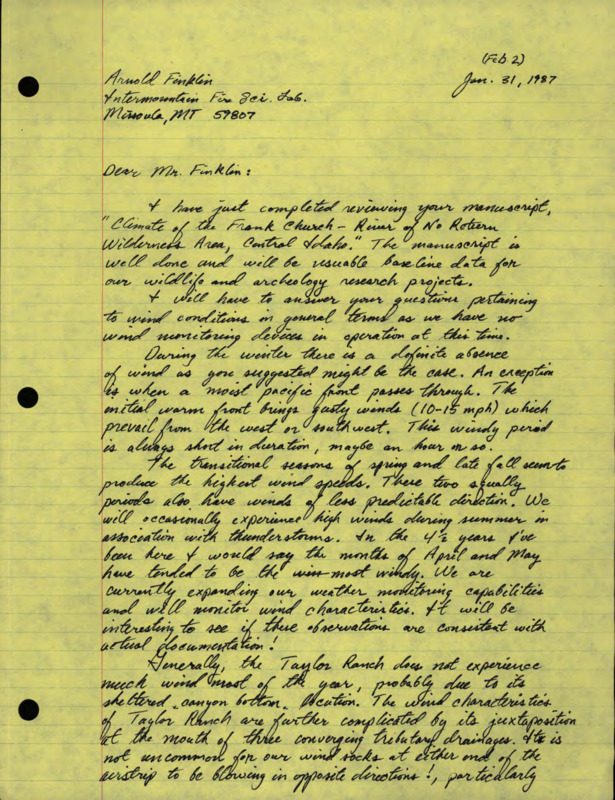 (Feb 2)
Arnold Finklin
Jan. 31, 1987
Intermountain Fire Sci. Lab.
Missoula, MT 59807
Dear Mr. Finklin:
I have just completed reviewing your manuscript,
"Climate of the Frank Church - River of No Return
Wilderness Area, Central Idaho." The manuscript is
well done and will be usuable baseline data for
our wildlife and archeology research projects.
I will have to answer your questions pertaining
to wind conditions in general terms as we have no
wind monitoring devices in operation at this time.
During the winter there is a definite absence
of wind as you suggested might be the case. An exception
is when a moist pacific front passes through. The
initial warm front brings gusty winds (10-15 mph) which
prevail from the west or southwest. This windy period
is always short in duration, maybe an hour or so.
The transitional seasons of spring and late fall seem to
produce the highest wind speeds. These two squally
periods also have winds of less predictable direction. We
will occasionally experience high winds during summer in
association with thunderstorms. In the 4½ years I've
been here I would say the months of April and May
have tended to be the most windy. We are
currently expanding our weather monitoring capabilities
and will monitor wind characteristics. It will be
interesting to see if these observations are consistent with
actual documentation!
Generally, the Taylor Ranch does not experience
much wind most of the year, probably due to its
sheltered canyon bottom location. The wind characteristics
of Taylor Ranch are further complicated by its juxtaposition
at the mouth of three converging tributary drainages. It is
not uncommon for our wind socks at either end of the
airstrip to be blowing in opposite directions!, particularly